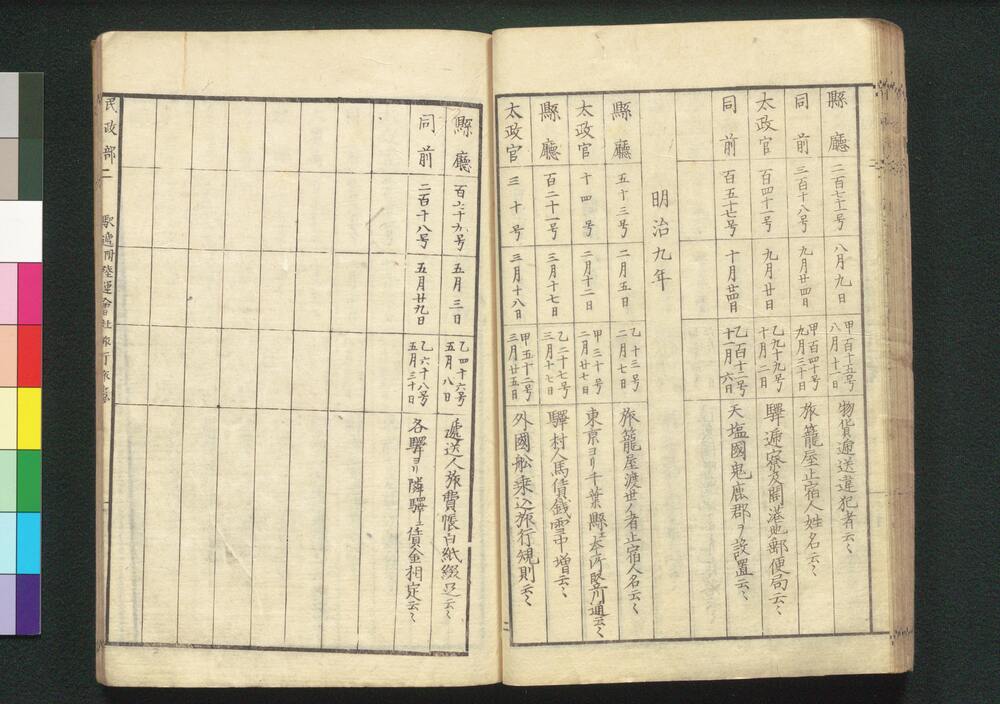 縣廳 二百七十五号 八月九日 甲百十五号 八月十二日 物貨逓送違犯者云々
同前 三百十八号 九月廿四日 甲百四十号 九月三十日 旅籠屋止宿人姓名云々
太政官 百四十一号 九月廿日 乙九十九号 十月二日 驛逓寮及開港地郵便局云々
同前 百五十七号 十月廿四日 乙百十二号 十一月六日 天塩國鬼鹿郡ヲ設置云々
明治九年
縣廳 五十三号 二月五日 乙十三号 二月七日 旅籠屋渡世ノ者止宿人名云々
太政官 十四号 二月十二日 甲三十号 二月廿七日 東京ヨリ千葉縣
縣廳 百二十一号 三月十七日 乙二十七号 三月十七日 驛村人馬賃銭雪中増云々
太政官 三十号 三月十八日 甲五十二号 三月廿五日 外國舩乗込旅行規則云々
二
縣廳 五月三日 乙四十六号 五月八日 遞送人旅費帳白紙綴足云々
同前 二百十八号 五月廿九日 乙六十八号 五月三十日 各驛ヨリ隣驛エ賃金相定云々
民政部二 驛逓附陸運會社